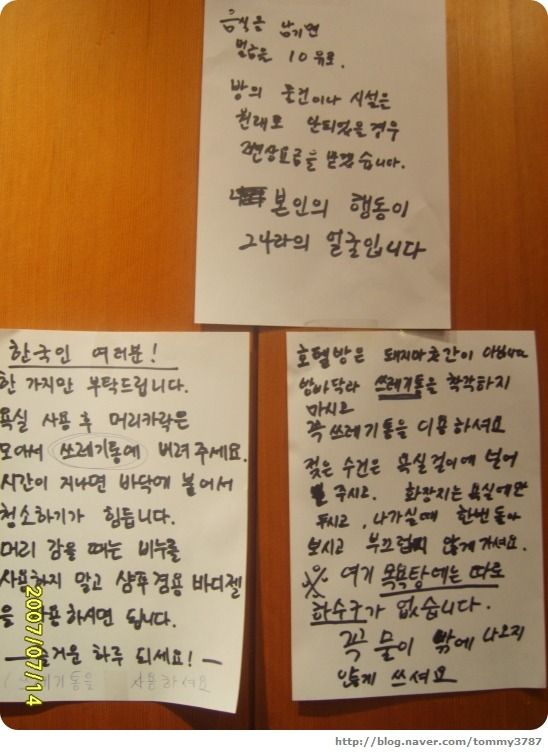 음식은 남기면
벌금은 10유로.
방의 물건이나 시설은
원래로 안되있을경우
변상요금을 받겠습니다.
본인의 행동이
그나라의 얼굴입니다
한국인 여러분!
한 가지만 부탁드립니다.
욕실 사용 후 머리카락은
모아서 쓰레기통에 버려주세요.
시간이 지나면 바닥에 붙어서
청소하기가 힘듭니다.
머리 감을 때는 비누를
사용하지 말고 샴푸겸용 바디젤
을 사용하시면 됩니다.
즐거운 하루 되세요!
쓰레기통을 사용하셔요
호텔방은 돼지마굿간이
방바닥과 쓰레기통을 착각하지
마시고
꼭 쓰레기통을 이용하셔요
젖은 수건은 욕실걸이에 널어
주시고. 화장지는 욕실에만
두시고, 나가실때 한번 돌아
보시고 부끄럽지 않게 가셔요.
※ 여기 목욕탕에는 따로
하수구가 없습니다.
꼭 물이 밖에 나오지
않게 쓰셔요
2007/07/14
http://blog.naver.com/tommy3787